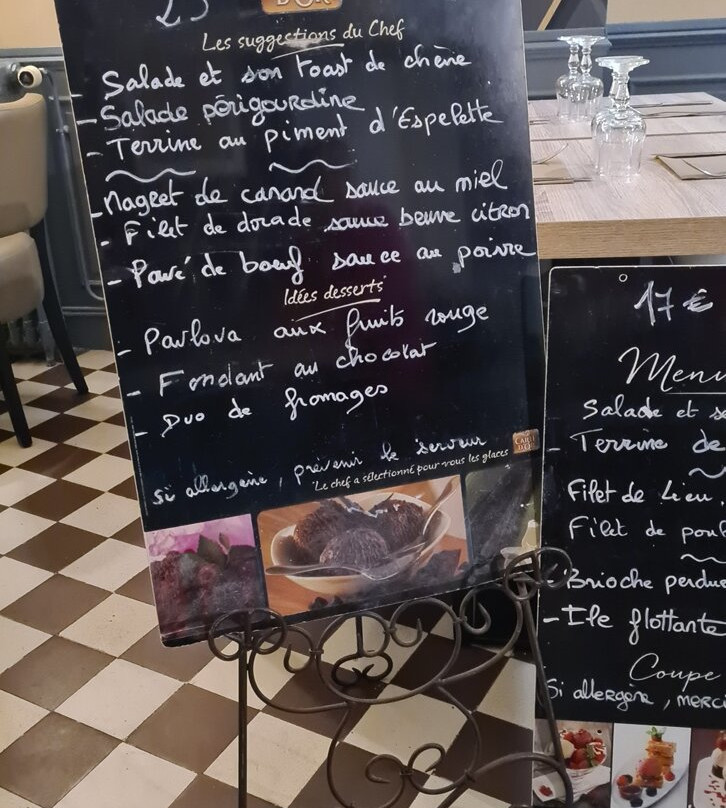 D'OR
Les suggestions du Chef
- Salade et son toast de chène
- Salade périgourdine
- Terrine au piment d'Espelette
- Mageet de canard sauce au miel
- Filet de dorade sauce beurre citron
- Pavé de boeuf sauce au poivre
Idées desserts
- Pavlova aux fruits rouge
- Fondant au chocolat
- Duo de fromages
si allergène, prévenir le serveur
CARTE D'OR
Le chef a sélectionné pour vous les glaces
17 €
Menu
Salade et s
- Terrine de
Filet de Lieu
Filet de poul
- Brioche perdue
- Ile flottante
Coupe
Si allergène, merci